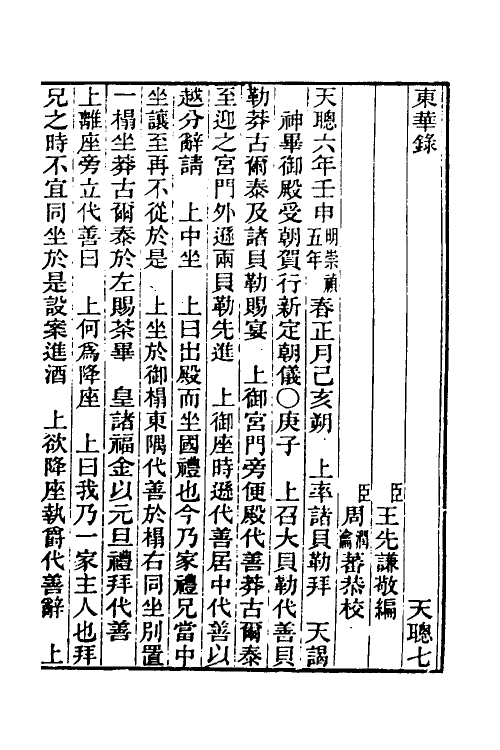 東華錄　天聰七
臣王先謙敬編
臣周潤蕃瀹蕃恭校
天聰六年壬申明崇禎五年春正月己亥朔　上率諸貝勒拜　天謁
神畢御殿受朝賀行新定朝儀〇庚子　上召大貝勒代善貝
勒莽古爾泰及諸貝勒賜宴　上御宮門旁便殿代善莽古爾泰
至迎之宮門外遜兩貝勒先進　上御座時遜代善居中代善以
越分辭請　上中坐　上曰出殿而坐國禮也今乃家禮兄當中
坐讓至再不從於是　上坐於御榻東隅代善於榻右同坐別置
一榻坐莽古爾泰於左賜茶畢　皇諸福金以元旦禮拜代善
上離座旁立代善曰　上何爲降座　上曰我乃一家主人也拜
兄之時不宜同坐於是設案進酒　上欲降座執爵代善辭　上